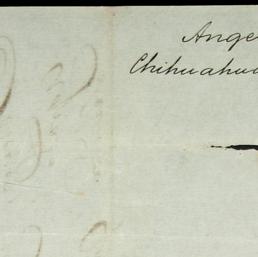 Ange
Chihuahu